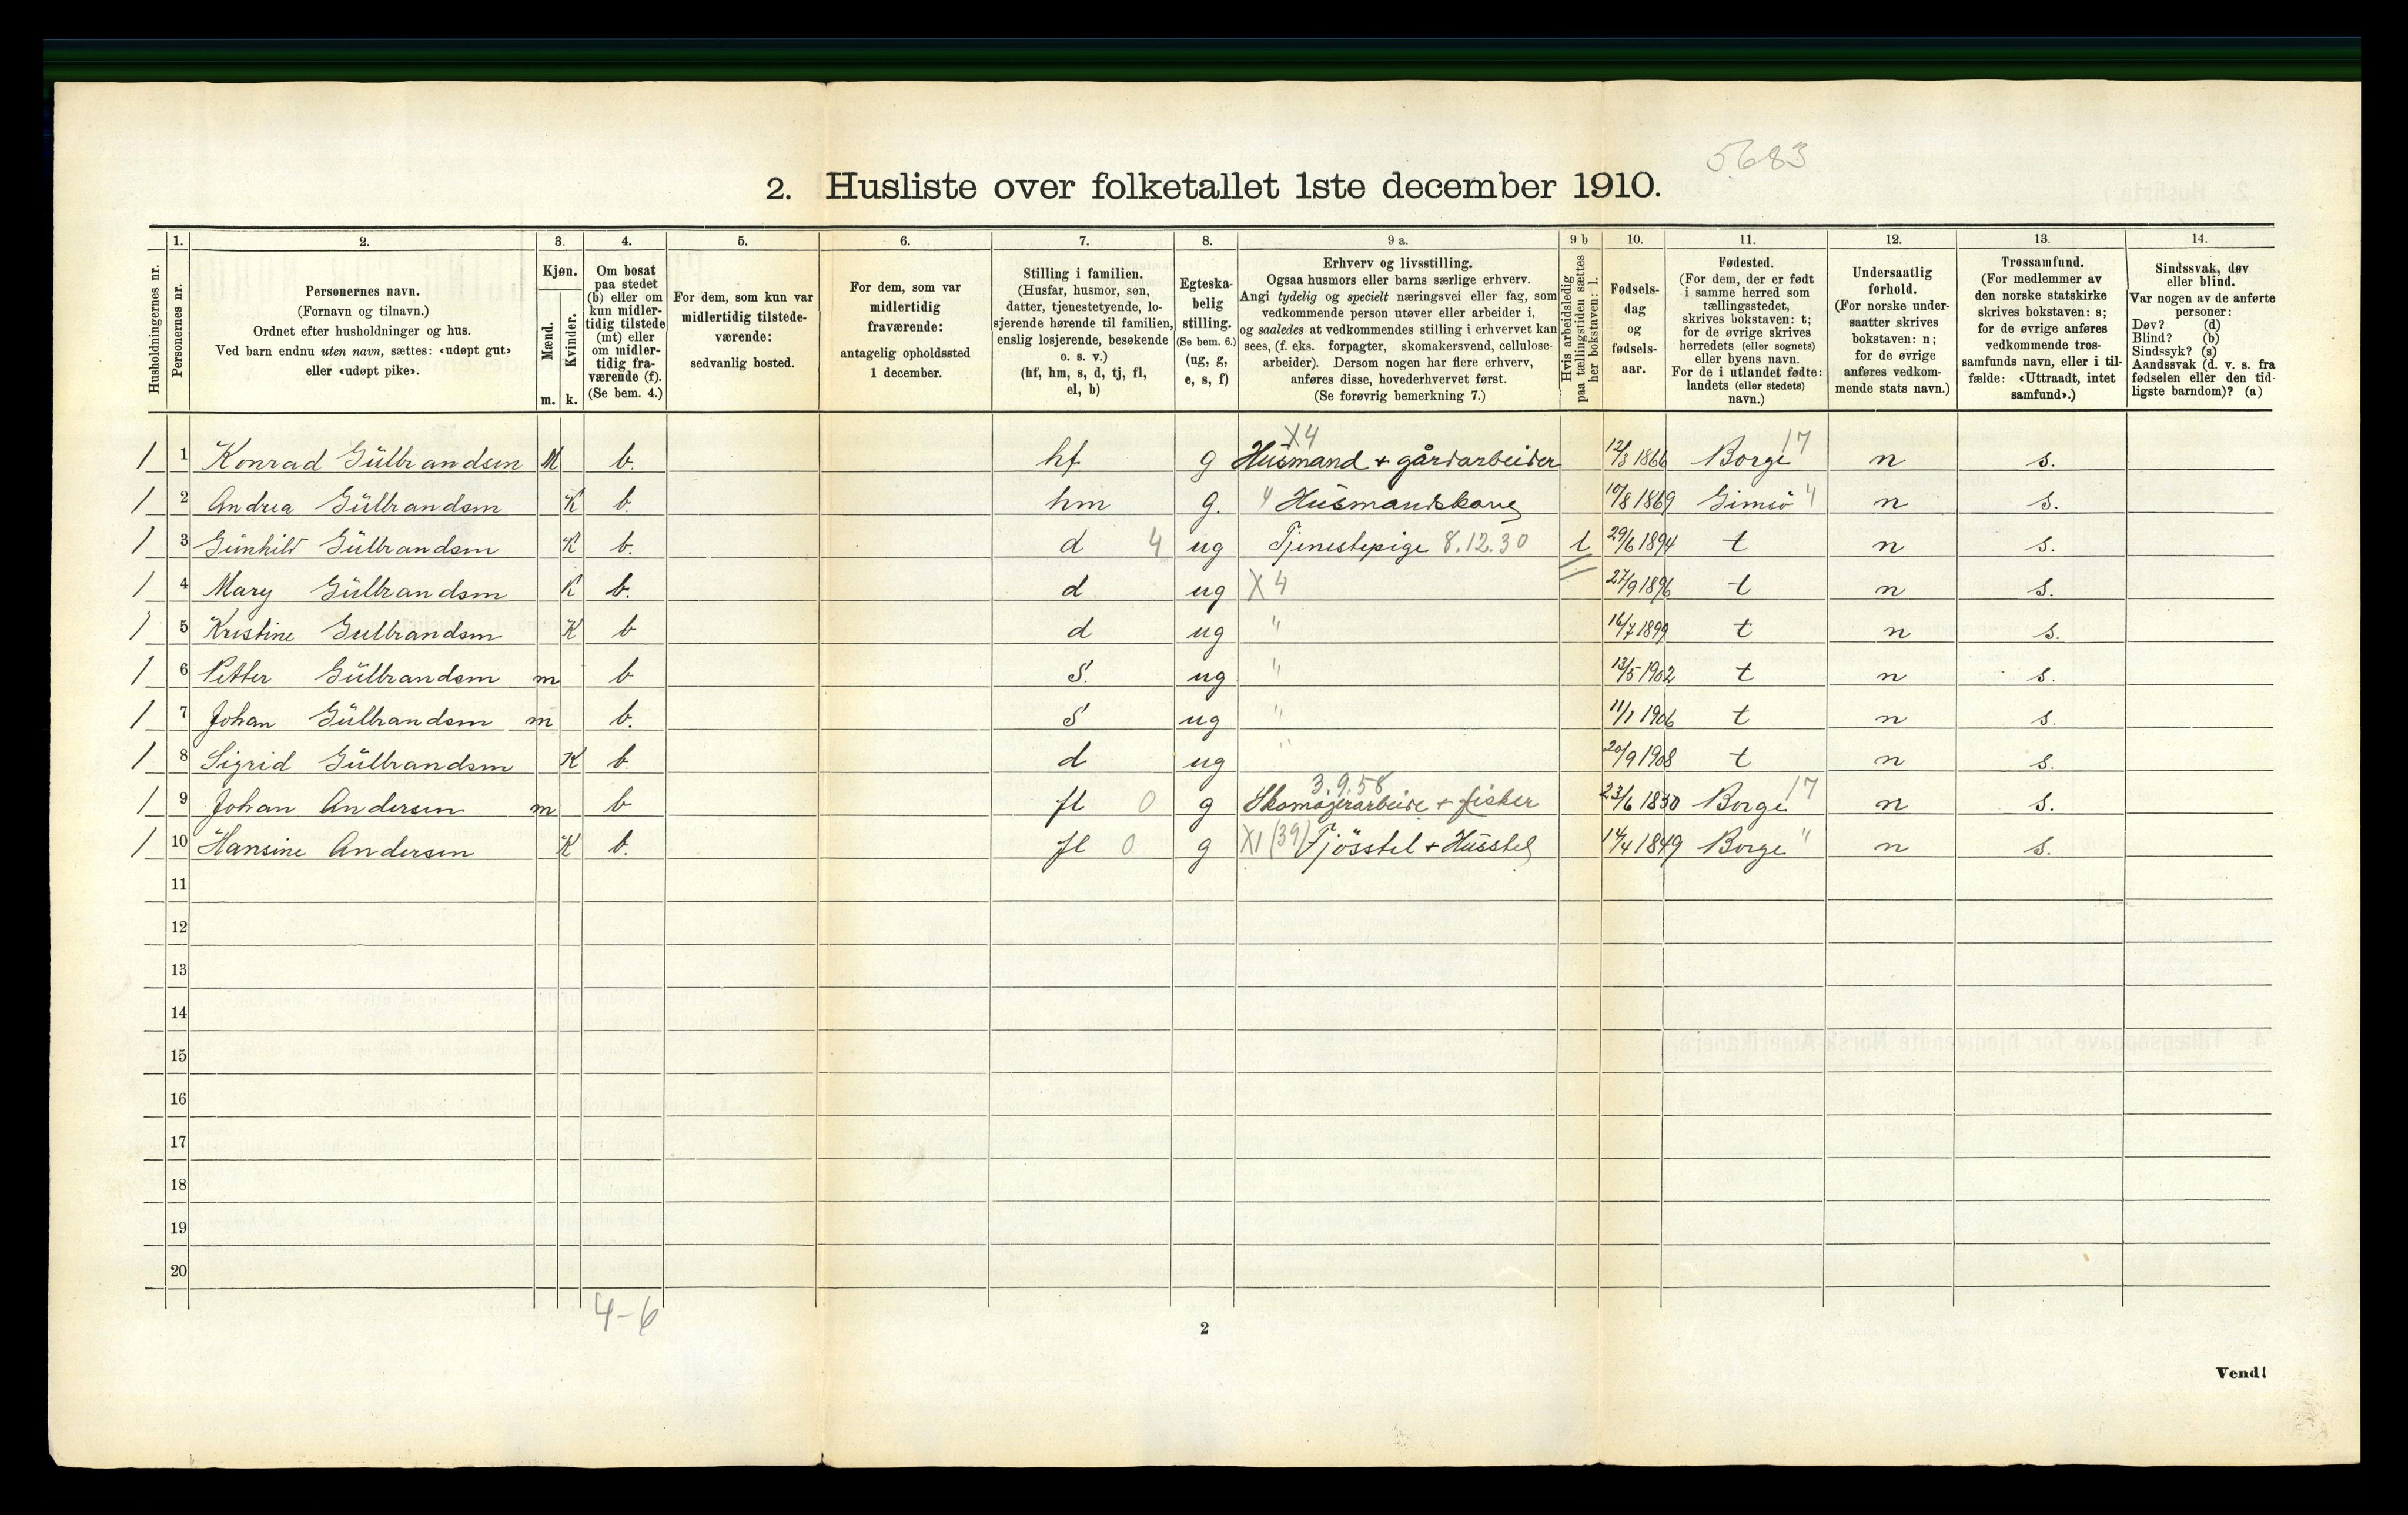 5683
2. Husliste over folketallet 1ste december 1910.
Husholdningernes nr.
1. 2. 3. 4. 5. 6. 7. 8. 9 a. 9 b 10. 11. 12. 13. 14.
Personernes nr.
Personernes navn.
(Fornavn og tilnavn.)
Ordnet efter husholdninger og hus.
Ved barn endnu uten navn, sættes: «udøpt gut»
eller «udøpt pike».
Kjøn.
Mænd.
Kvinder.
m. k.
Om bosat
paa stedet
(b) eller om
kun midler-
tidig tilstede
(mt) eller
om midler-
tidig fra-
værende (f).
(Se bem. 4.)
For dem, som kun var
midlertidig tilstede-
værende:
sedvanlig bosted.
For dem, som var
midlertidig
fraværende:
antagelig opholdssted
1 december.
Stilling i familien.
(Husfar, husmor, søn,
datter, tjenestetyende, lo-
sjerende hørende til familien,
enslig losjerende, besøkende
o. s. v.)
(hf, hm, s, d, tj, fl,
el, b)
Egteska-
belig
stilling.
(Se bem. 6.)
(ug, g,
e, s, f)
Erhverv og livsstilling.
Ogsaa husmors eller barns særlige erhverv.
Angi tydelig og specielt næringsvei eller fag, som
vedkommende person utøver eller arbeider i,
og saaledes at vedkommendes stilling i erhvervet kan
sees, (f. eks. forpagter, skomakersvend, cellulose-
arbeider). Dersom nogen har flere erhverv,
anføres disse, hovederhvervet først.
(Se forøvrig bemerkning 7.)
Hvis arbeidsledig
paa tællingstiden sættes
her bokstaven: l.
Fødsels-
dag
og
fødsels-
aar.
Fødested.
(For dem, der er født
i samme herred som
tællingsstedet,
skrives bokstaven: t;
for de øvrige skrives
herredets (eller sognets)
eller byens navn.
For de i utlandet fødte:
landets (eller stedets)
navn.)
Undersaatlig
forhold.
(For norske under-
saatter skrives
bokstaven: n;
for de øvrige
anføres vedkom-
mende stats navn.)
Trossamfund.
(For medlemmer av
den norske statskirke
skrives bokstaven: s;
for de øvrige anføres
vedkommende tros-
samfunds navn, eller i til-
fælde: «Uttraadt, intet
samfund».)
Sindssvak, døv
eller blind.
Var nogen av de anførte
personer:
Døv? (d)
Blind? (b)
Sindssyk? (s)
Aandssvak (d. v. s. fra
fødselen eller den tid-
ligste barndom)? (a)
X4
1 1 Konrad Gülbrandsen M b. hf g Husmand + gårdarbeider 12/3 1866 Borge 17 n s.
1 2 Andrea Gülbrandsen K b. hm g. " Husmandskone 10/8 1869 Gimsö " n s.
1 3 Günhild Gülbrandsen K b. d 4 ug Tjenestepige 8.12.30 l 29/6 1894 t n s.
1 4 Mary Gülbrandsen K b. d ug X4 27/9 1896 t n s.
1 5 Kristine Gulbrandsen K b d ug " 16/7 1899 t n s.
1 6 Petter Gülbrandsen m b S. ug " 13/5 1902 t n s.
1 7 Johan Gülbrandsen m b. S ug " 11/1 1906 t n s.
1 8 Sigrid Gülbrandsen K b. d ug " 20/9 1908 t n s.
3.9.58
1 9 Johan Andersen m b fl 0 g Skomagerarbeide + fisker 23/6 1830 Borge 17 n s.
1 10 Hansine Andersen K b. fl 0 g X1 (39) Fjösstel + Husstel 14/4 1849 Borge " n s.
11
12
13
14
15
16
17
18
19
20
4-6
2
Vend!